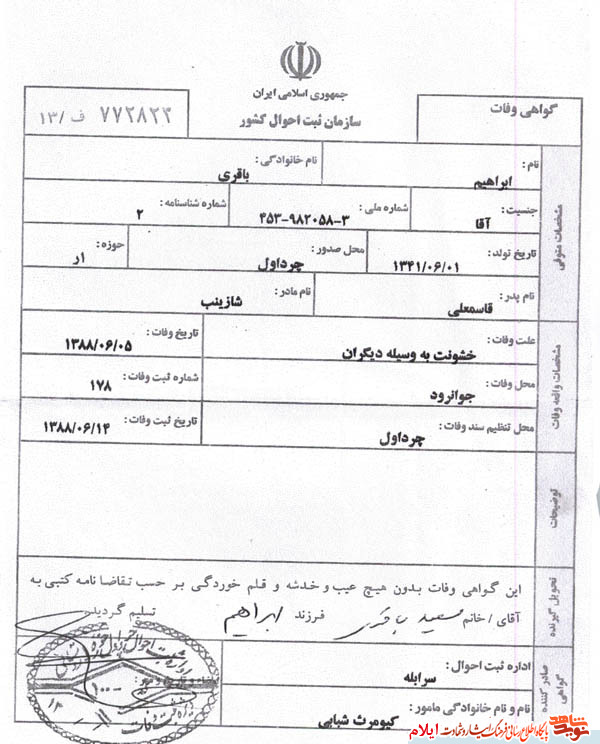 جمهوری اسلامی ایران
سازمان ثبت احوال کشور
گواهی وفات
۷۷۲۸۲۴ ف /۱۳
مشخصات متوفی
نام : ابراهیم
نام خانوادگی : باقری
جنسیت : آقا
شماره ملی : ۴۵۳-۹۸۲۰۵۸-۳
شماره شناسنامه : ۲
تاریخ تولد : ۱۳۴۱/۰۶/۰۱
محل صدور : چرداول
حوزه : ار
نام پدر : قاسمعلی
نام مادر : شازینب
مشخصات واقعه وفات
علت وفات : خشونت به وسیله دیگران
تاریخ وفات : ۱۳۸۸/۰۶/۰۵
محل وفات : جوانرود
شماره ثبت وفات : ۱۷۸
محل تنظیم سند وفات : چرداول
تاریخ ثبت وفات : ۱۳۸۸/۰۶/۱۴
توضیحات
تحویل گیرنده
این گواهی وفات بدون هیچ عیب و خدشه و قلم خوردگی بر حسب تقاضا نامه کتبی به
آقای / خانم سعید باقری فرزند ابراهیم تسلیم گردید
صادر کننده گواهی
اداره ثبت احوال : سرابله
نام و نام خانوادگی مامور : کیومرث شبابی
نوید شاهد
پایگاه اطلاع رسانی فرهنگ ایثار و شهادت ایلام